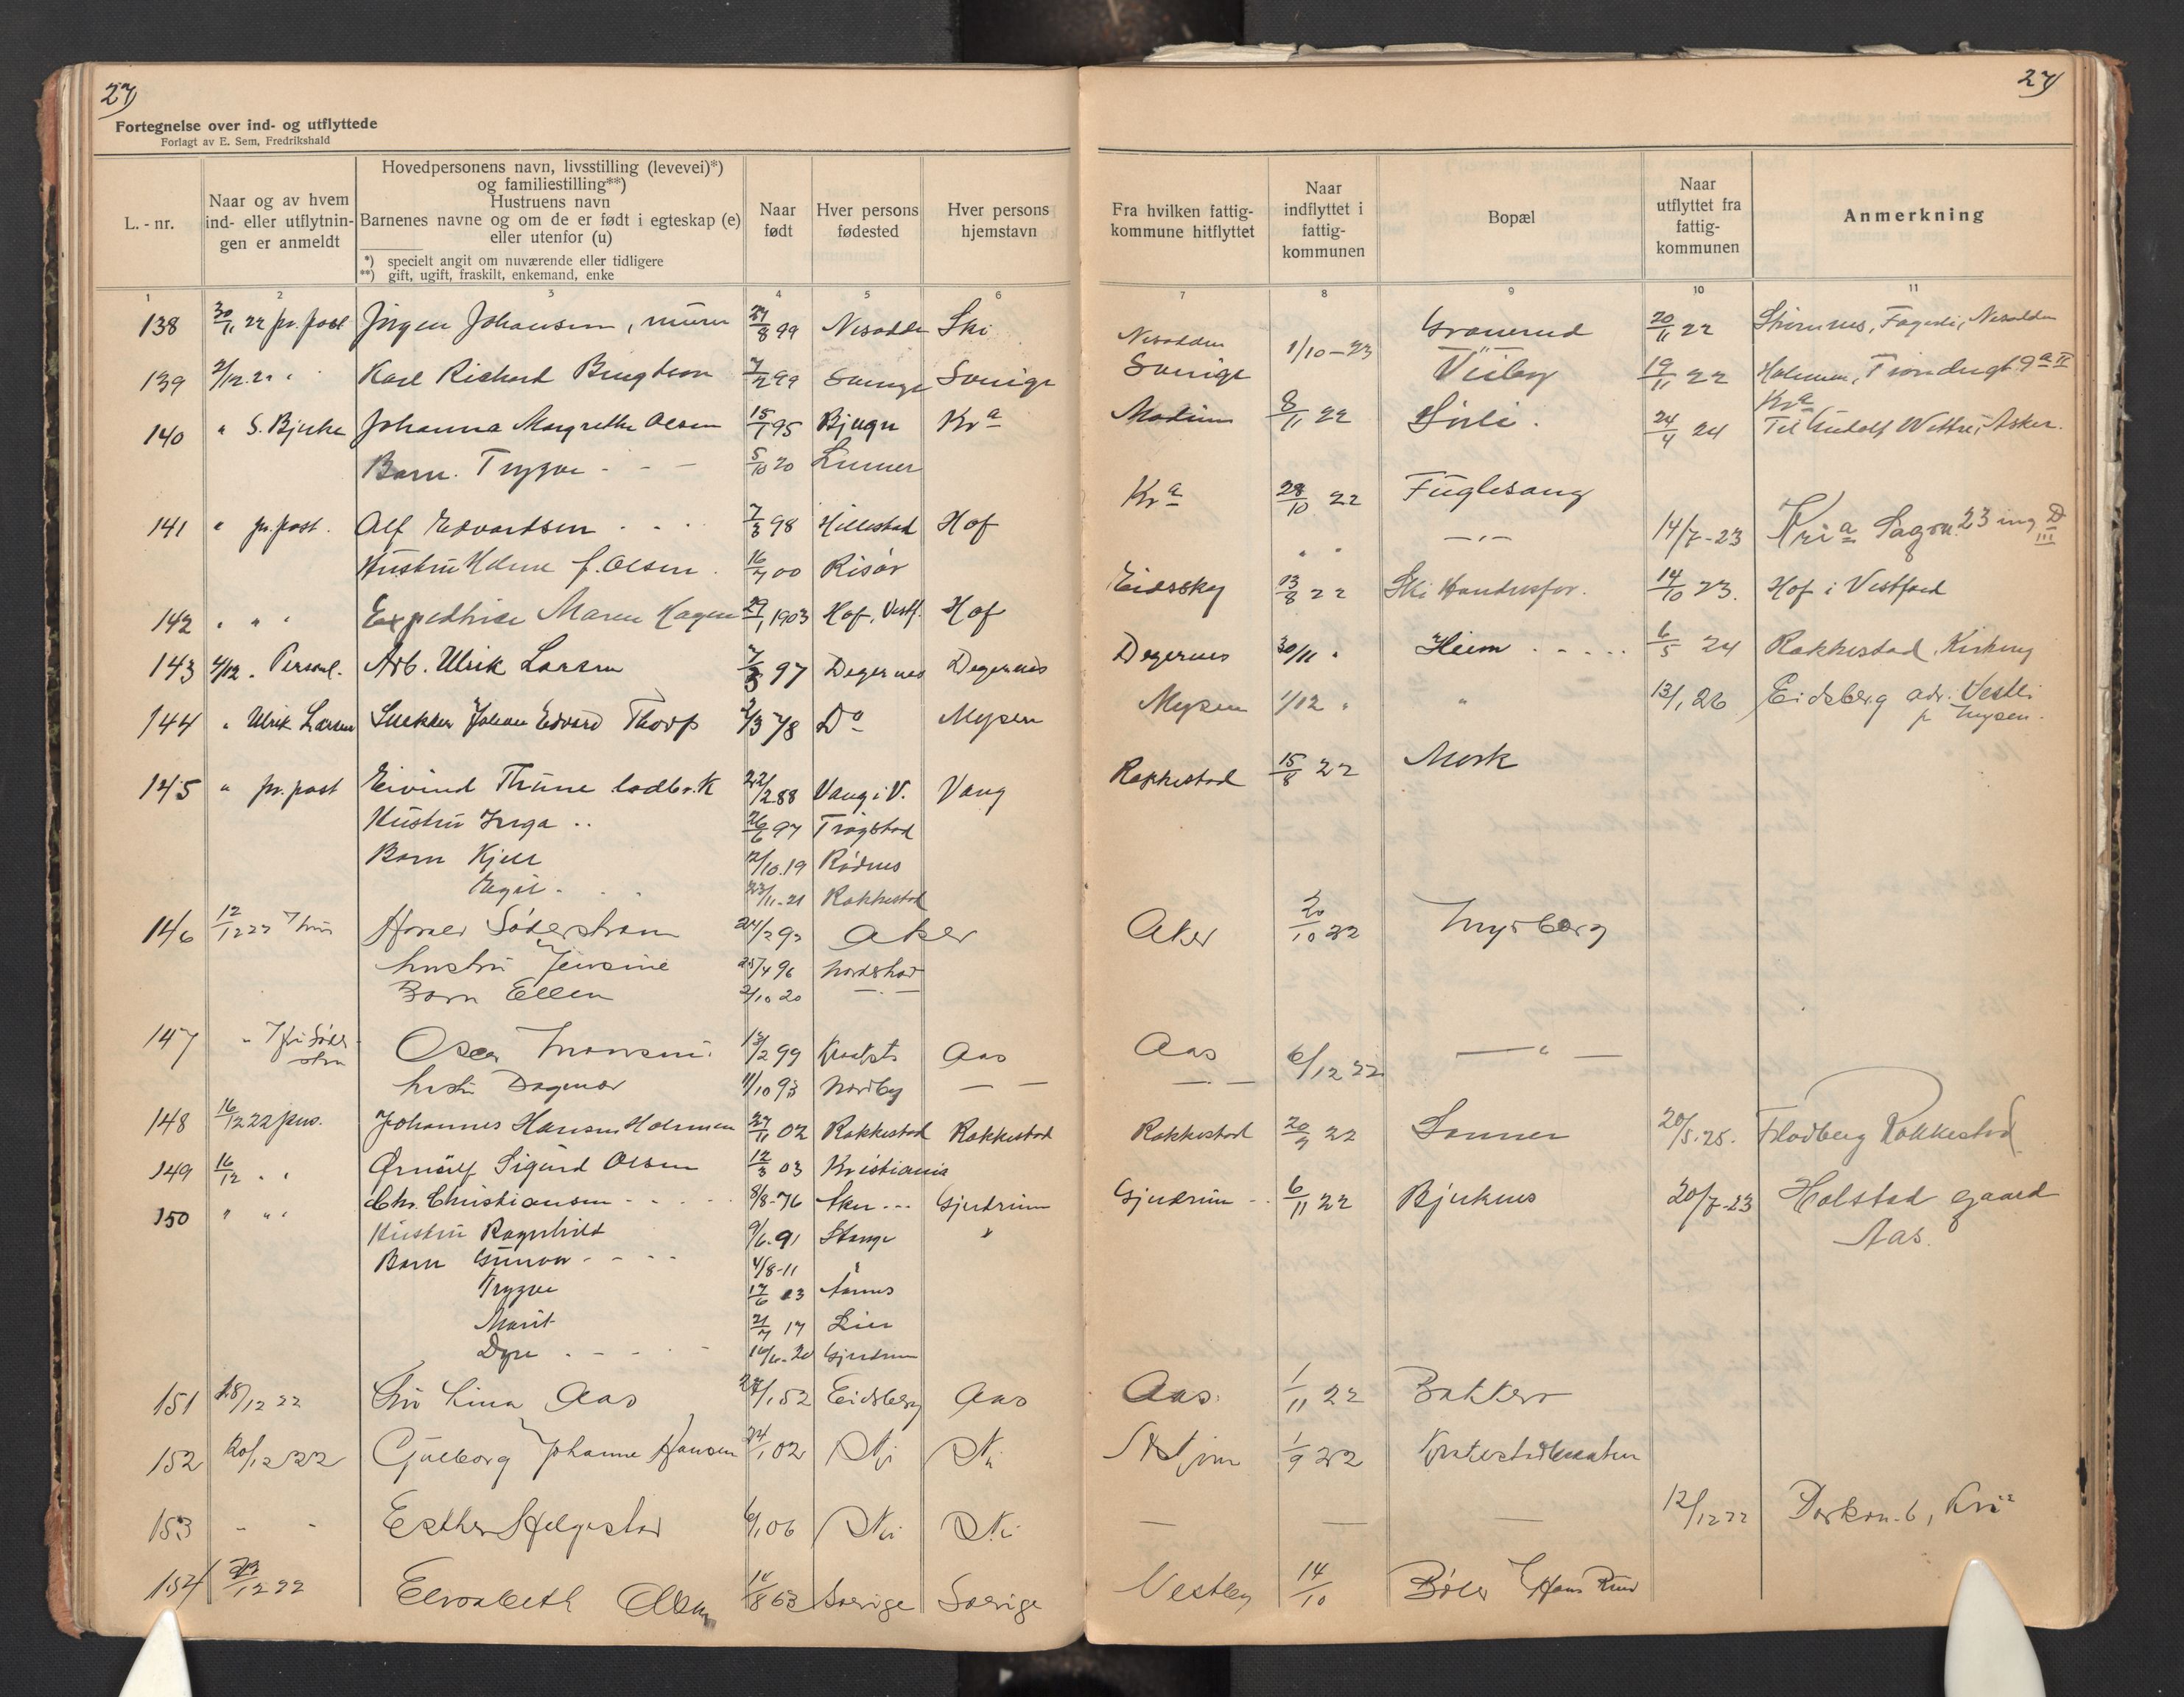 27
27
Fortegnelse over ind- og utflyttede
Forlagt av E. Sem, Fredrikshald
L.-nr.
Naar og av hvem ind- eller utflytnin-gen er anmeldt
Hovedpersonens navn, livsstilling (levevei)*)
og familiestilling**)
Hustruens navn
Barnenes navne og om de er født i egteskap (e)
eller utenfor (u)
*) specielt angit om nuværende eller tidligere
**) gift, ugift, fraskilt, enkemand, enke
Naar født
Hver persons fødested
Hver persons hjemstavn
Fra hvilken fattig-kommune hitflyttet
Naar indflyttet i fattig-kommunen
Bopæl
Naar utflyttet fra fattig-kommunen
Anmerkning
1 2 3 4 5 6 7 8 9 10 11
138 30/11 22 pr. post Jørgen Johansen, murer 27/8 99 Nesodde Ski Granerud 20/11 22 Fagerli, Nesodden
Nesodden 1/10-23
139 2/12.22 " Karl Richard Bengtson 7/2 99 Sverige Sverige Sverige Viiby 19/11 22
140 " S. Bjerke Johanna Margrethe Olsen 15/7 95 Bjugn Kra Modum 8/11 22 24/4 24 Til Asker.
Barn. Trygve - - - 5/10 20 Lunner
141 " pr. post. Alf Edvardsen 7/3 98 Hillestad Hof Kra 28/10 22 Fuglesang 14/7-23 Kria 23
Hustru f. Olsen 16/7 00 Risør
142 " " " Expeditrice Maren Hagen 29/1 1903 Hof, Vestf. Hof Eidsskog 13/8 22 Ski Handelsfor. 14/10 23. Hof i Vestfold
143 4/12 . Personl. Arb. Ulrik Larsen 7/3 97 Degernes Degernes Degernes 30/11 " Heim 6/5 24 Rakkestad, Kirkeng
144 " Ulrik Larsen Snekker Johan Edvard Thorp 2/3 78 Do Mysen Mysen 1/12 " " 13/1 26 Eidsberg adr. Vestli
p Mysen.
145 " pr. post Eivind Thune lodbr.k 22/2 88 Vang i V. Vang Rakkestad 15/8 22 Mork
Hustru Inga .. 26/6 97 Trøgstad
Barn Kjell 12/10.19 Rødnes
Egil - 23/11-21 Rakkestad
146 12/12 22 Harald Söderstrøm 24/2 92 Aker Aker 20/10 22 Myrberg
hustru Jensine 25/4 96 Nordstrand
Barn Ellen 2/10 20 — " —
147 " Oscar 13/2 99 Aas Aas 6/12 22 — " —
hustru Dagmar 11/10 93 Nordby — — — " —
148 16/12 22 pers. Johannes Hansen Holmsen 27/11 02 Rakkestad Rakkestad Rakkestad 20/9 22 Sonner 20/5.25. Flodberg Rakkestad
149 16/12 " " Ørnulf Sigurd Olsen 12/3 03 Kristiania
150 " " " Chr. Christiansen 8/8-76 Gjerdrum Gjerdrum 6/11 22 Bjerkenes 20/7-23 Holstad gaard
Aas.
Hustru Ragnhild 9/6.91 Stange "
Barn Gunvor - - - - 4/8-11 "
Trygve 17/6 13
Marit 21/7 17 Lier
Dyre 16/6-20 Gjerdrum
151 18/12 22 Fru Lina Aas 27/1 52 Eidsberg Aas Aas 1/11 22 Bakkero
152 20/12 22 Gjulborg Johanne Hansen 24/1 02 Ski Ski 1/9 22
153 - - Esther Helgestad 6/1 06 Ski Ski — — — 12/12 22 6, Kria
154 /12 22 Elisabeth Olsen 14/8 63 Sverige Sverige Vestby 14/10 Bøler Hans Ruud